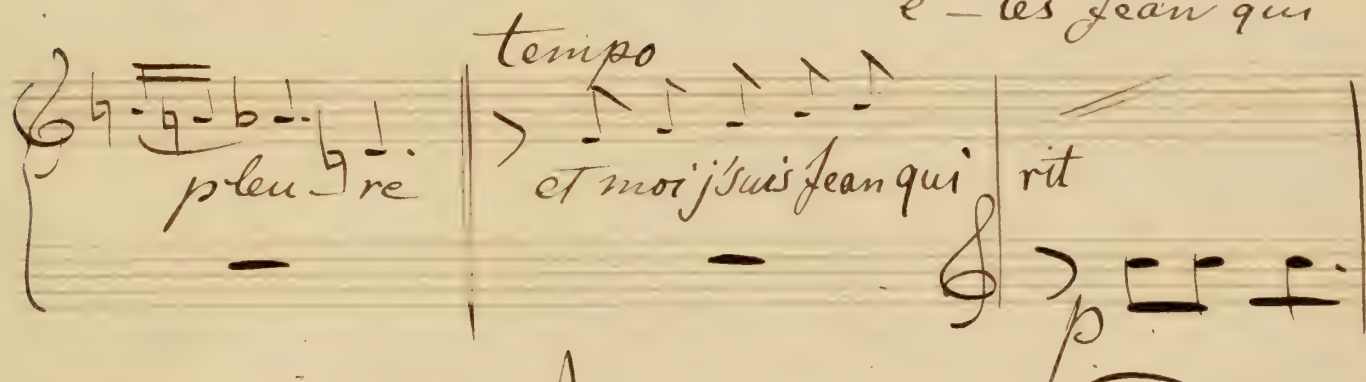 ê - tes Jean qui
tempo
pleu - re et moi j'suis Jean qui rit
p